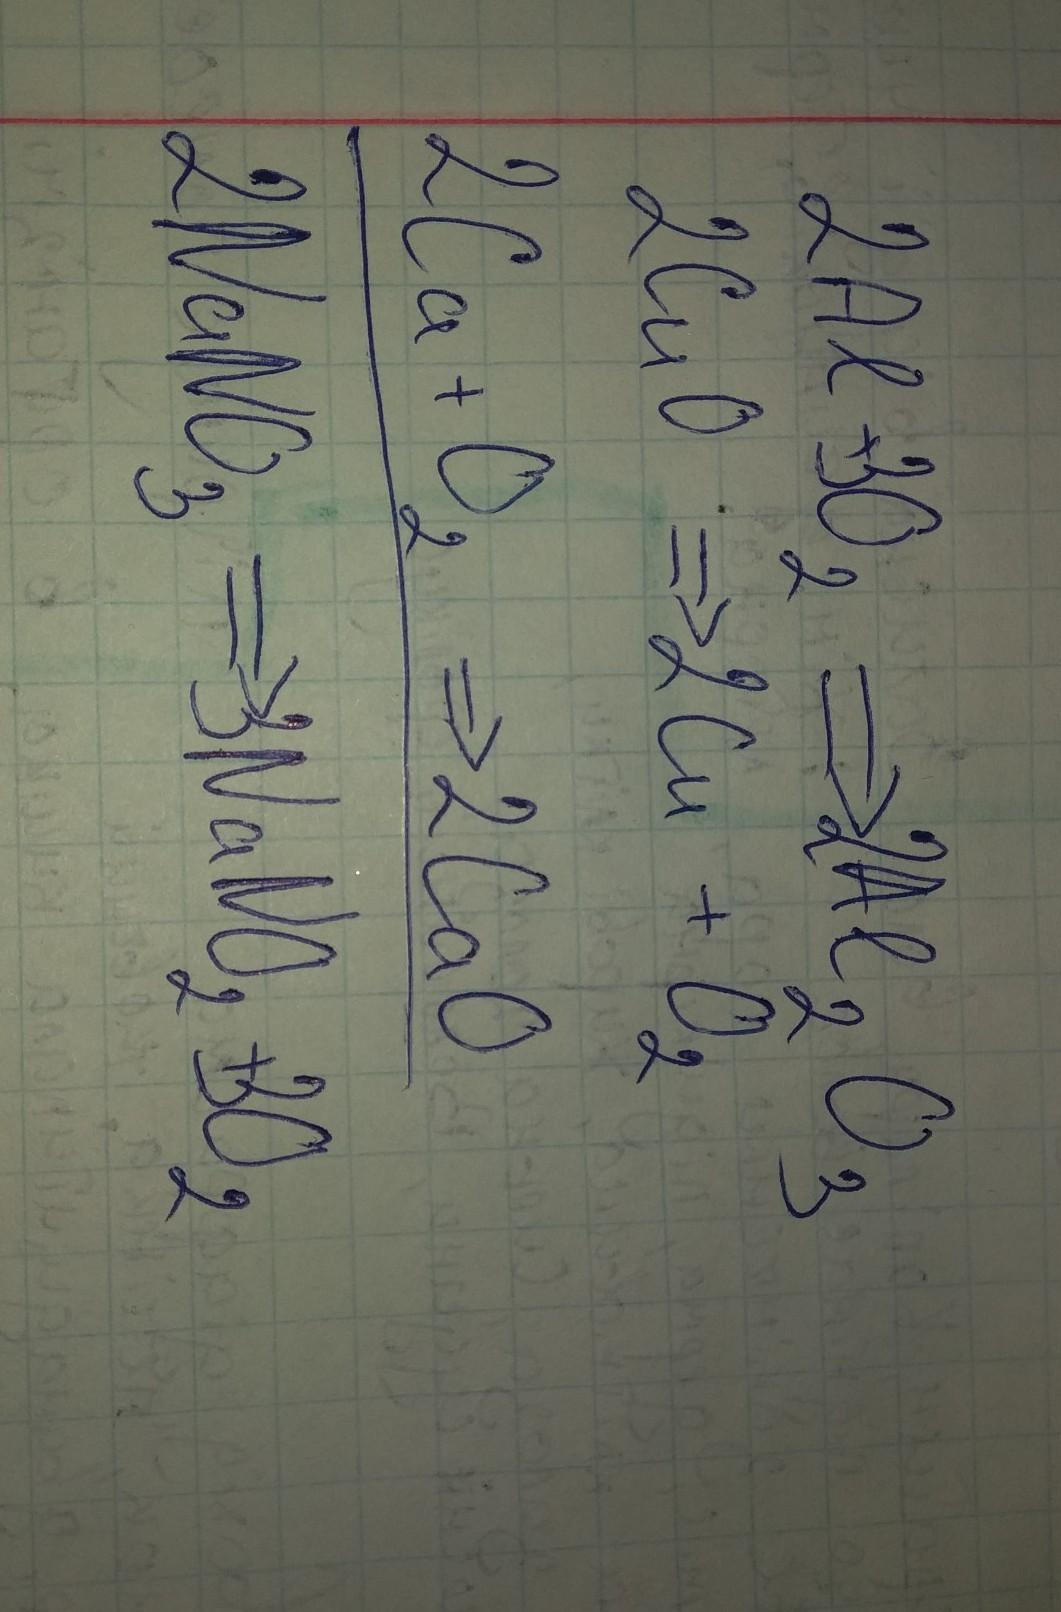 2Al + 3O₂ ⇒ 2Al₂O₃
2CuO ⇒ 2Cu + O₂
2Ca + O₂ ⇒ 2CaO
2NaNO₃ ⇒ 3NaNO₂ + 3O₂